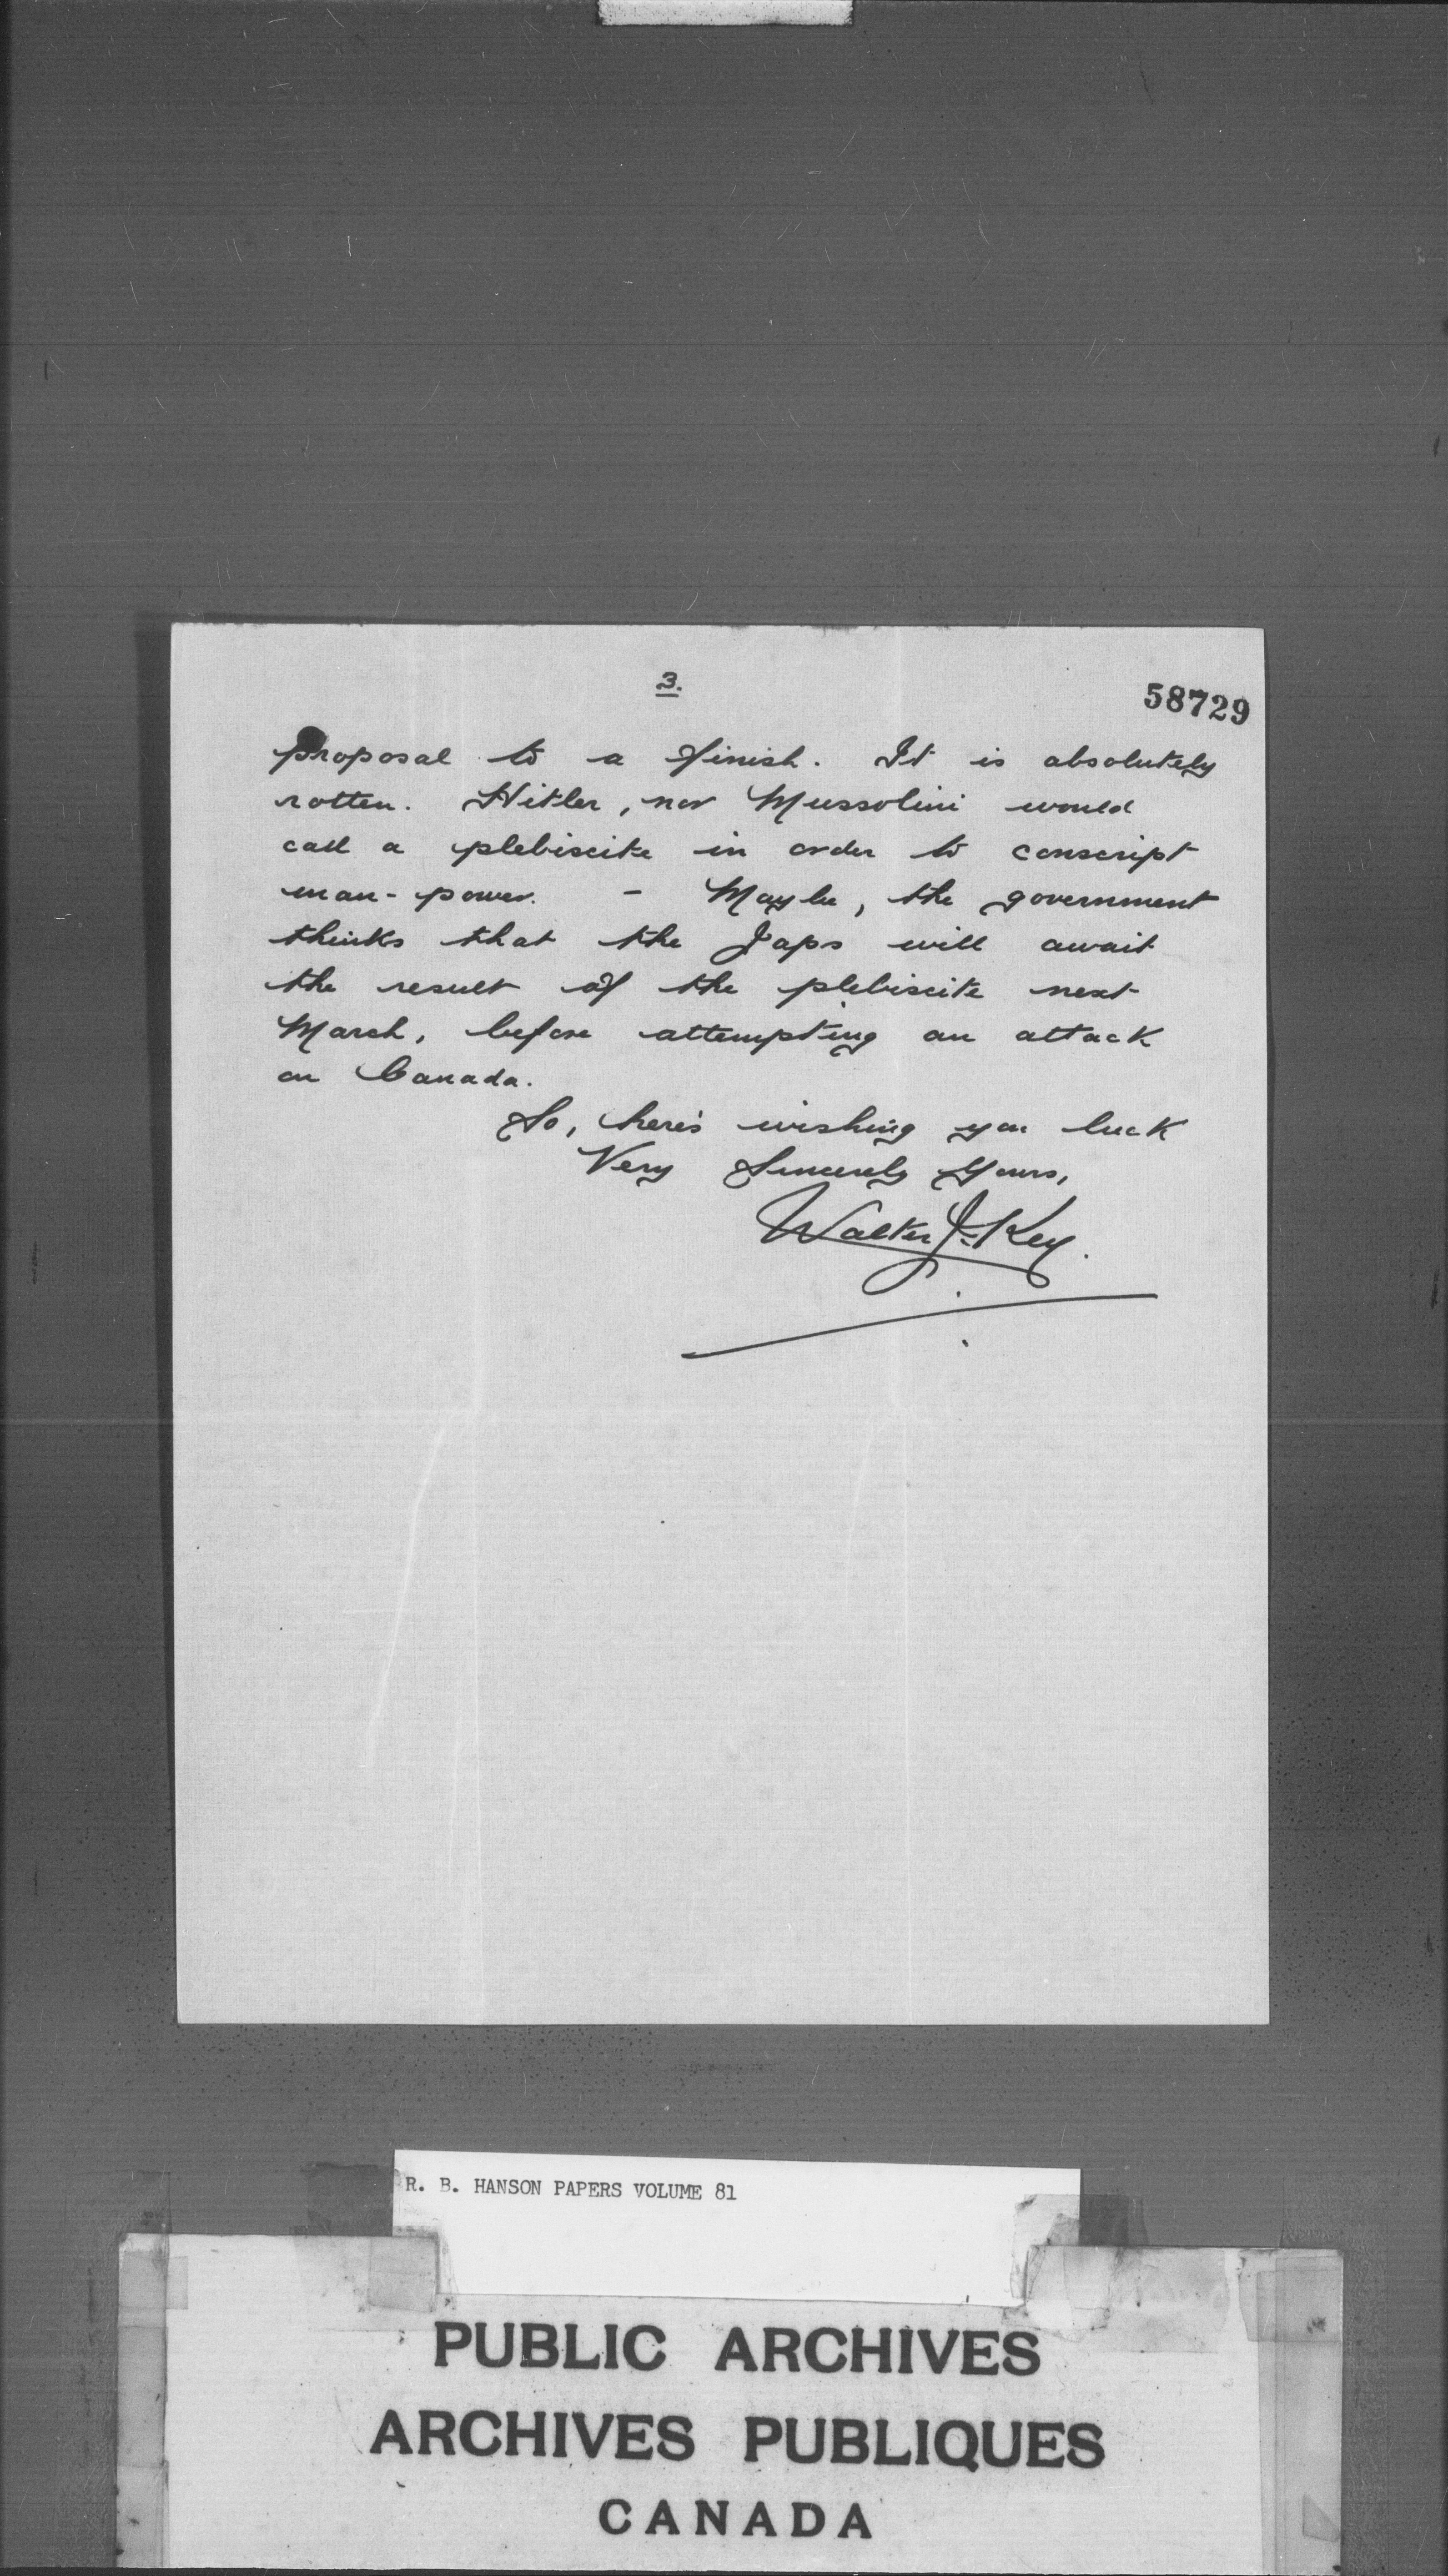 3.
58729
proposal to a finish. It is absolutely
rotten. Hitler, nor Mussolini would
call a plebiscite in order to conscript
man-power. - Maybe, the government
thinks that the Japs will await
the result of the plebiscite next
March, before attempting an attack
on Canada.
So, here's wishing you luck
Very Sincerely Yours,
Walter J. Key.
R. B. HANSON PAPERS VOLUME 81
PUBLIC ARCHIVES
ARCHIVES PUBLIQUES
CANADA